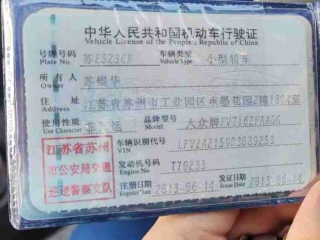 中华人民共和国机动车行驶证
Vehicle License of the People's Republic of China
号牌号码 苏E523CK 车辆类型 小型轿车
Plate No. Vehicle Type
所有人 苏银华
Owner
住址 江苏省苏州市工业园区水墨花园2幢1804室
Address
使用性质 非营运 品牌型号 大众牌
Use Character
江苏省苏州市公安局交通巡逻警察支队
车辆识别代号
VIN
发动机号码 T76233
Engine No.
注册日期 2013-06-14 发证日期 2013-06-14
Register Date Issue Date